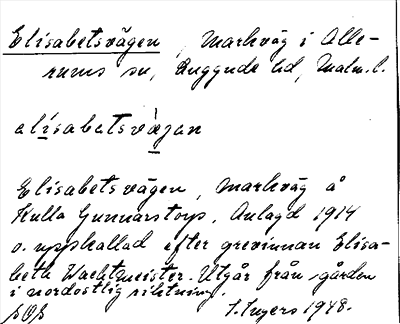 Elisabetsvägen, Markväg i Alle-
rums sn, Luggude hd, Malm. l.
elisabetsvägan
Elisabetsvägen, Markväg å
Kulla Gunnarstorp. Anlagd 1914
o. uppkallad efter grevinnan Elisa-
beth Wachtmeister. Utgår från gården
i nordostlig riktning.
I. Ingers 1948.